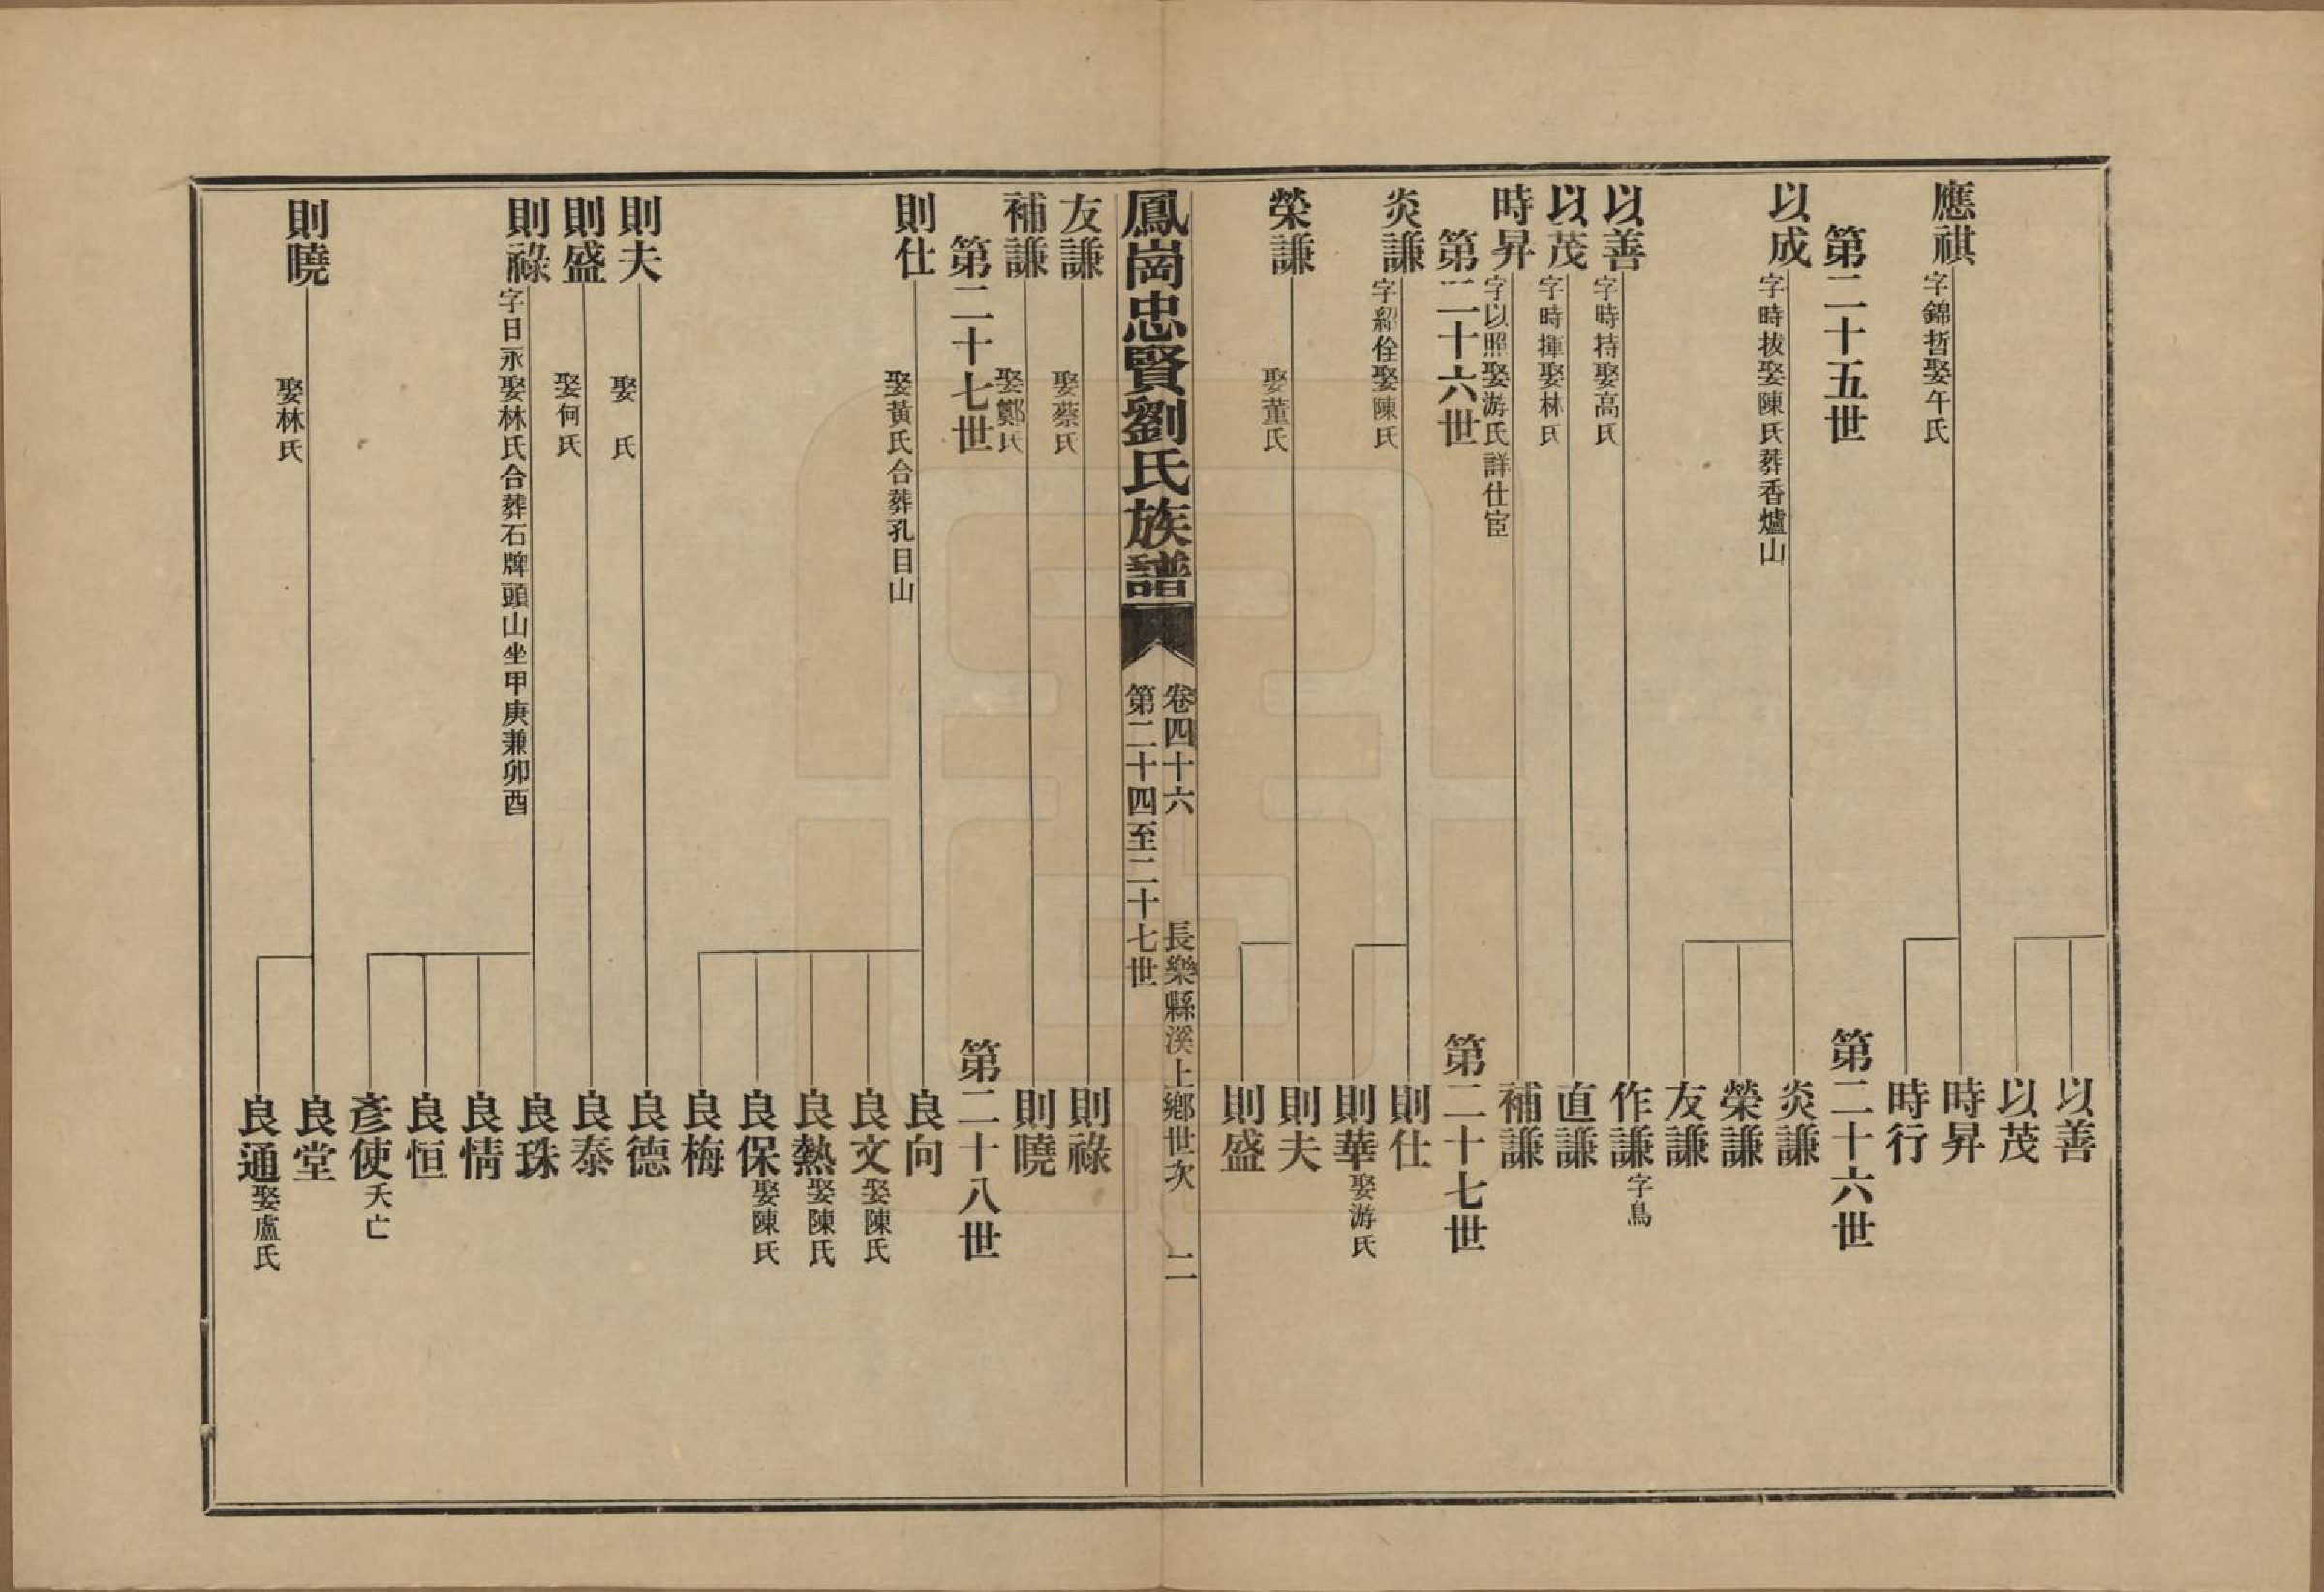 以善
以茂
應祺 字錦哲娶午氏
時昇
時行
第二十五世
第二十六世
以成 字時拔娶陳氏葬香爐山
炎謙
榮謙
友謙
以善 字時持娶高氏
作謙 字鳥
以茂 字時揮娶林氏
直謙
時昇 字以照娶游氏詳仕宦
補謙
第二十六世
第二十七世
炎謙 字紹佺娶陳氏
則仕
則華 娶游氏
榮謙 娶董氏
則夫
則盛
鳳崗忠賢劉氏族譜
卷四十六 長樂縣溪上鄉世次 二
第二十四至二十七世
友謙 娶蔡氏
則祿
補謙 娶鄭氏
則曉
第二十七世
第二十八世
則仕 娶黃氏合葬孔目山
良向
良文 娶陳氏
良熱 娶陳氏
良保 娶陳氏
良梅
則夫 娶 氏
良德
則盛 娶何氏
良泰
則祿 字日永娶林氏合葬石牌頭山坐甲庚兼卯酉
良珠
良情
良恒
彥使 夭亡
則曉 娶林氏
良堂
良通 娶盧氏